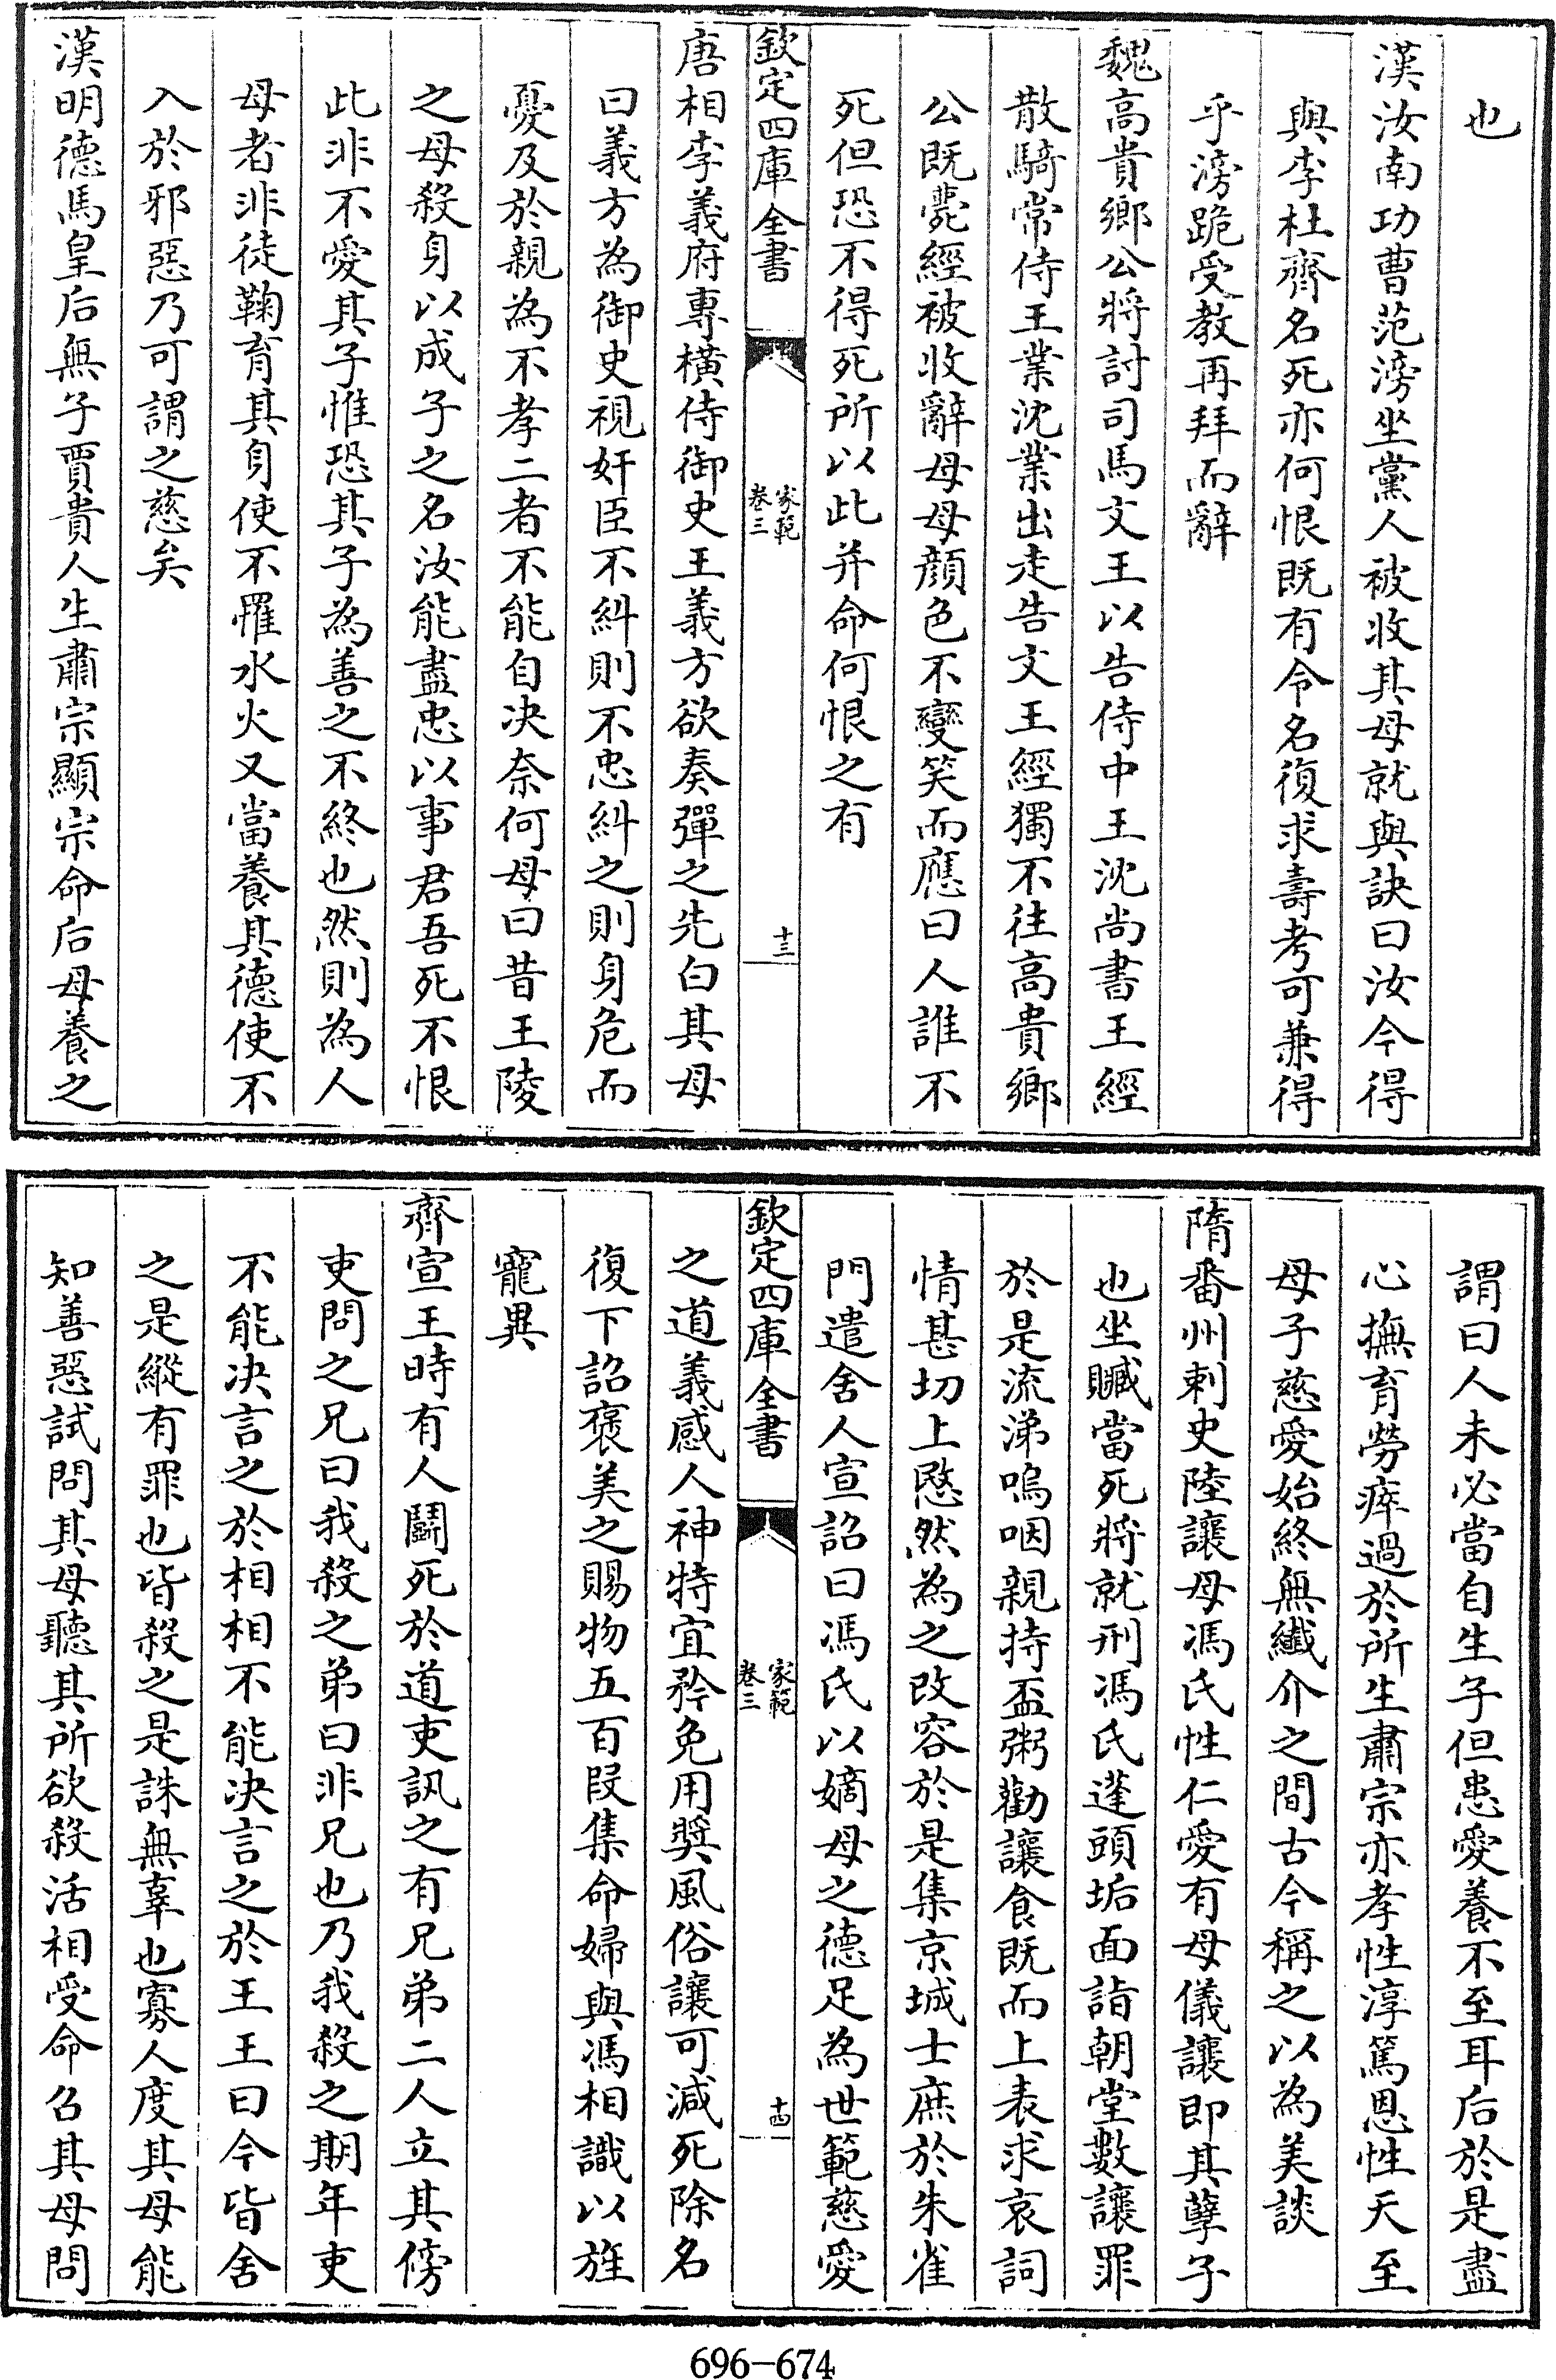 也
漢汝南功曹范滂坐黨人被收其母就與訣曰汝今得
與李杜齊名死亦何恨既有令名復求壽考可兼得
乎滂跪受教再拜而辭
魏高貴鄉公將討司馬文王以告侍中王沈尚書王經
散騎常侍王業沈業出走告文王經獨不往高貴鄉
公既薨經被收辭母母顔色不變笑而應曰人誰不
死但恐不得死所以此并命何恨之有
欽定四庫全書
家範
卷三
十三
唐相李義府專横侍御史王義方欲奏彈之先白其母
曰義方為御史視奸臣不糾則不忠糾之則身危而
憂及於親為不孝二者不能自决奈何母曰昔王陵
之母殺身以成子之名汝能盡忠以事君吾死不恨
此非不愛其子惟恐其子為善之不終也然則為人
母者非徒鞠育其身使不罹水火又當養其德使不
入於邪惡乃可謂之慈矣
漢明德馬皇后無子賈貴人生肅宗顯宗命后母養之
謂曰人未必當自生子但患愛養不至耳后於是盡
心撫育勞瘁過於所生肅宗亦孝性淳篤恩性天至
母子慈愛始終無纎介之間古今稱之以為美談
隋番州刺史陸讓母馮氏性仁愛有母儀讓即其孽子
也坐贓當死將就刑馮氏蓬頭垢面詣朝堂數讓罪
於是流涕嗚咽親持盃粥勸讓食既而上表求哀詞
情甚切上愍然為之改容於是集京城士庶於朱雀
門遣舍人宣詔曰馮氏以嫡母之德足為世範慈愛
欽定四庫全書
家範
卷三
十四
之道義感人神特宜矜免用奬風俗讓可減死除名
復下詔褒美之賜物五百段集命婦與馮相識以旌
寵異
齊宣王時有人鬭死於道吏訊之有兄弟二人立其傍
吏問之兄曰我殺之弟曰非兄也乃我殺之期年吏
不能决言之於相相不能决言之於王王曰今皆舍
之是縱有罪也皆殺之是誅無辜也寡人度其母能
知善惡試問其母聽其所欲殺活相受命召其母問
696-674